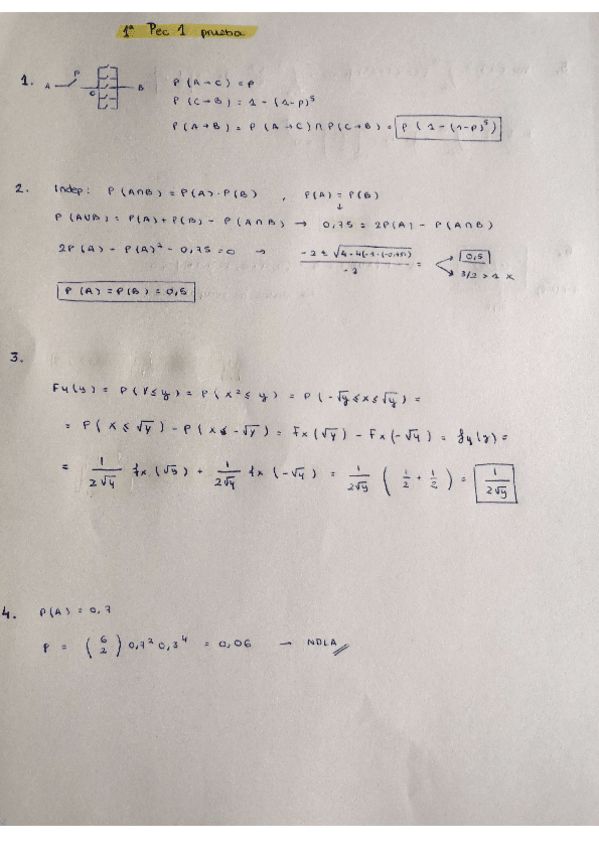 1ª Pec 1 prueba
1.
A P C B
P(A→C) = P
P(C→B) = 1-(1-p)^5
P(A→B) = P(A→C)∩P(C→B) = P(1-(1-p)^5)
2. Indep: P(A∩B) = P(A)·P(B) , P(A) = P(B)
↓
P(A∪B) = P(A)+P(B) - P(A∩B) → 0,75 = 2P(A) - P(A∩B)
2P(A) - P(A)² - 0,75 = 0 → = 0,5
3/2 > 1 x
P(A) = P(B) = 0,5
3.
Fy(y) = P(Y≤y) = P(x²≤y) = P(-√y≤x≤√y) =
= P(x≤√y) - P(x≤-√y) = Fx(√y) - Fx(-√y) = fy(y) =
= 1/2√y fx(√y) + 1/2√y fx(-√y) = 1/2√y (1/2 + 1/2) = 1/2√y
4. P(A) = 0,7
P = (6 2) 0,7² 0,3⁴ = 0,06 → NDLA